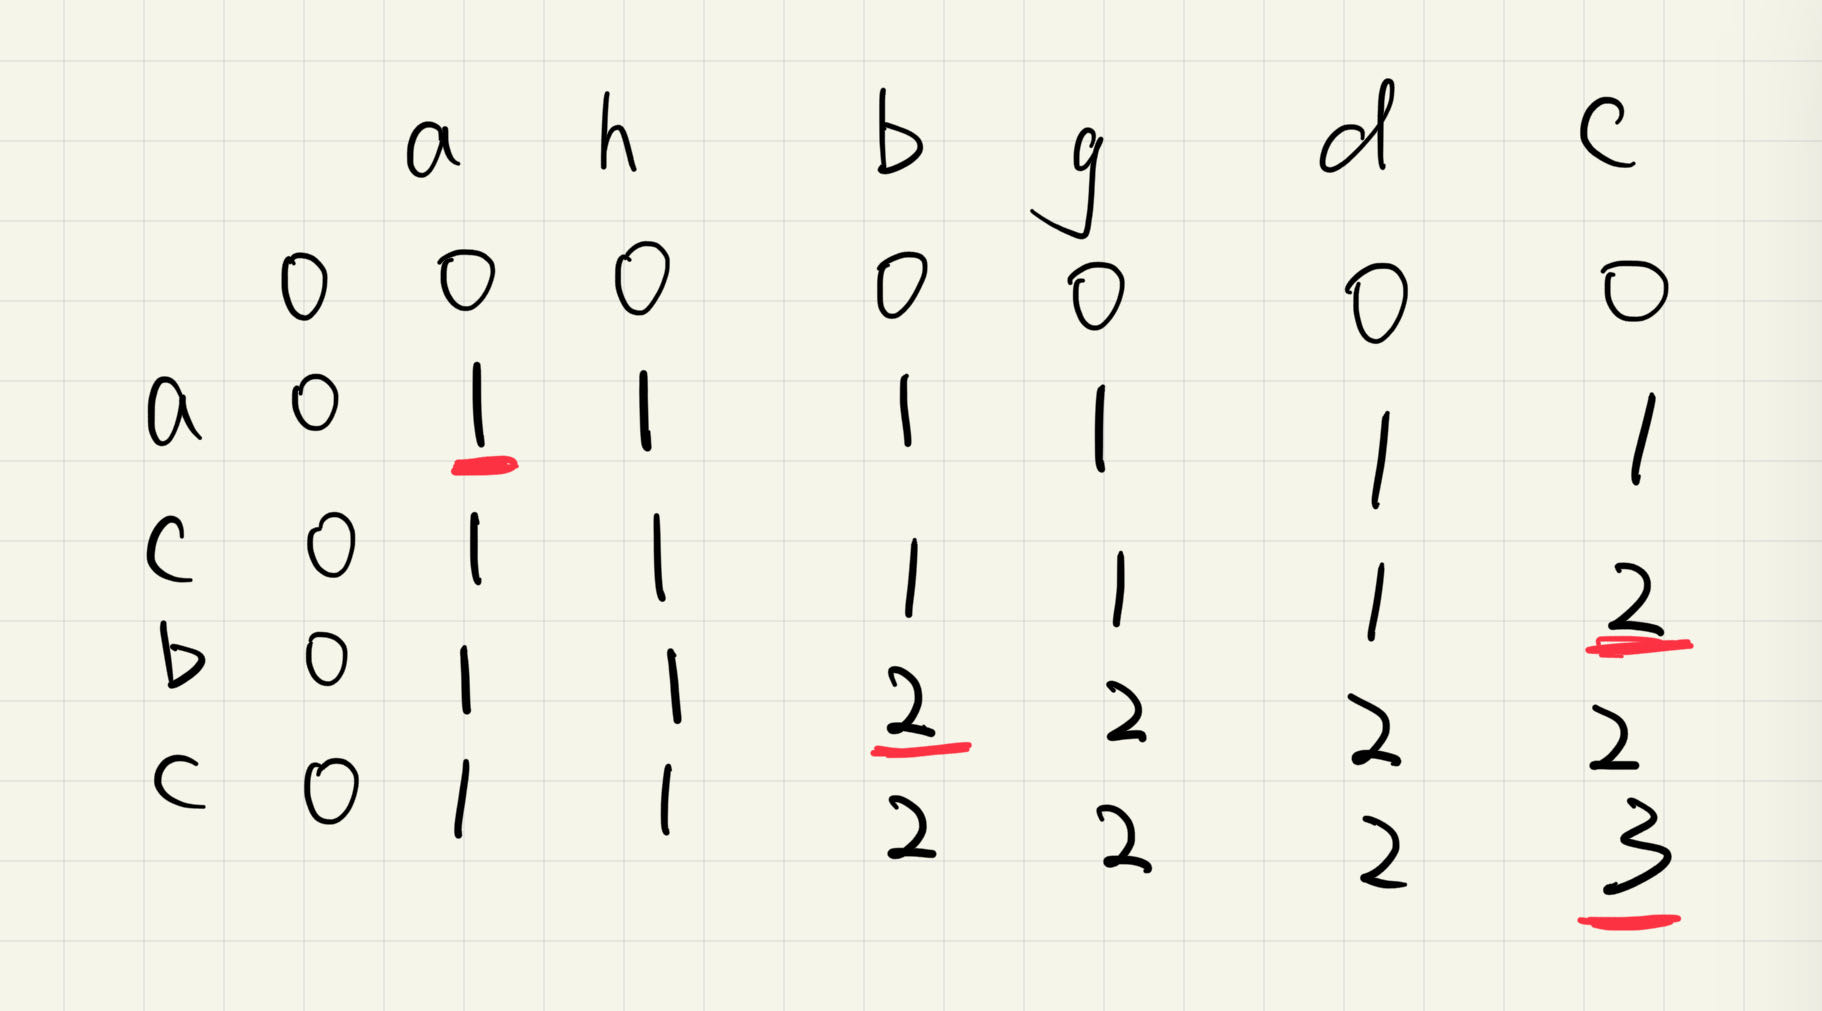 a h b g d c
0 0 0 0 0 0 0
a 0 1 1 1 1 1 1
c 0 1 1 1 1 1 2
b 0 1 1 2 2 2 2
c 0 1 1 2 2 2 3